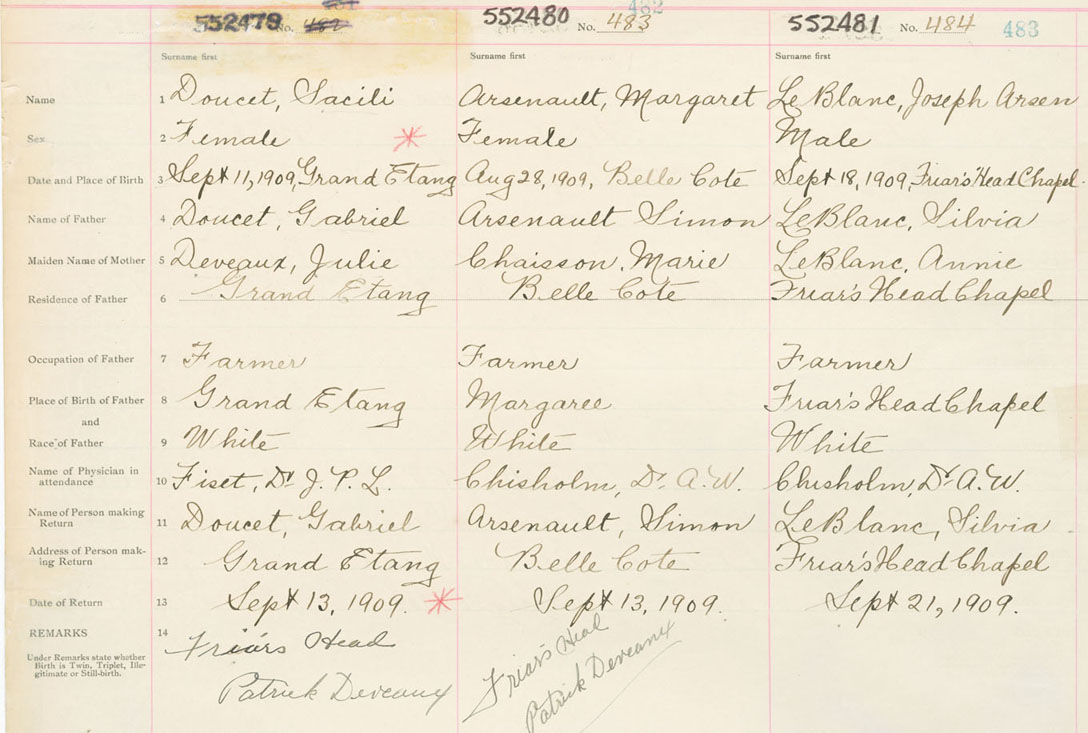 552479 No. 482 481
552480 No. 483 482
552481 No. 484 483
Surname first Surname first Surname first
Name 1 Doucet, Sacili Arsenault, Margaret LeBlanc, Joseph Arsen
Sex 2 Female Female Male
Date and Place of Birth 3 Sept 11, 1909, Grand Etang Aug 28, 1909, Belle Cote Sept 18, 1909, Friar's Head Chapel.
Name of Father 4 Doucet, Gabriel Arsenault Simon LeBlanc, Silvia
Maiden Name of Mother 5 Deveaux, Julie Chaisson, Marie LeBlanc, Annie
Residence of Father 6 Grand Etang Belle Cote Friar's Head Chapel
Occupation of Father 7 Farmer Farmer Farmer
Place of Birth of Father 8 Grand Etang Margaree Friar's Head Chapel
and
Race of Father 9 White White White
Name of Physician in
attendance 10 Fiset, Dr J. P. L. Chisholm, Dr. A. W. Chisholm, Dr A. W.
Name of Person making
Return 11 Doucet, Gabriel Arsenault, Simon LeBlanc, Silvia
Address of Person mak-
ing Return 12 Grand Etang Belle Cote Friar's Head Chapel
Date of Return 13 Sept 13, 1909. Sept 13, 1909. Sept 21, 1909.
REMARKS 14 Friars Head Friar's Head
Under Remarks state whether
Birth is Twin, Triplet, Ille-
gitimate or Still-birth.
Patrick Deveaux Patrick Deveaux